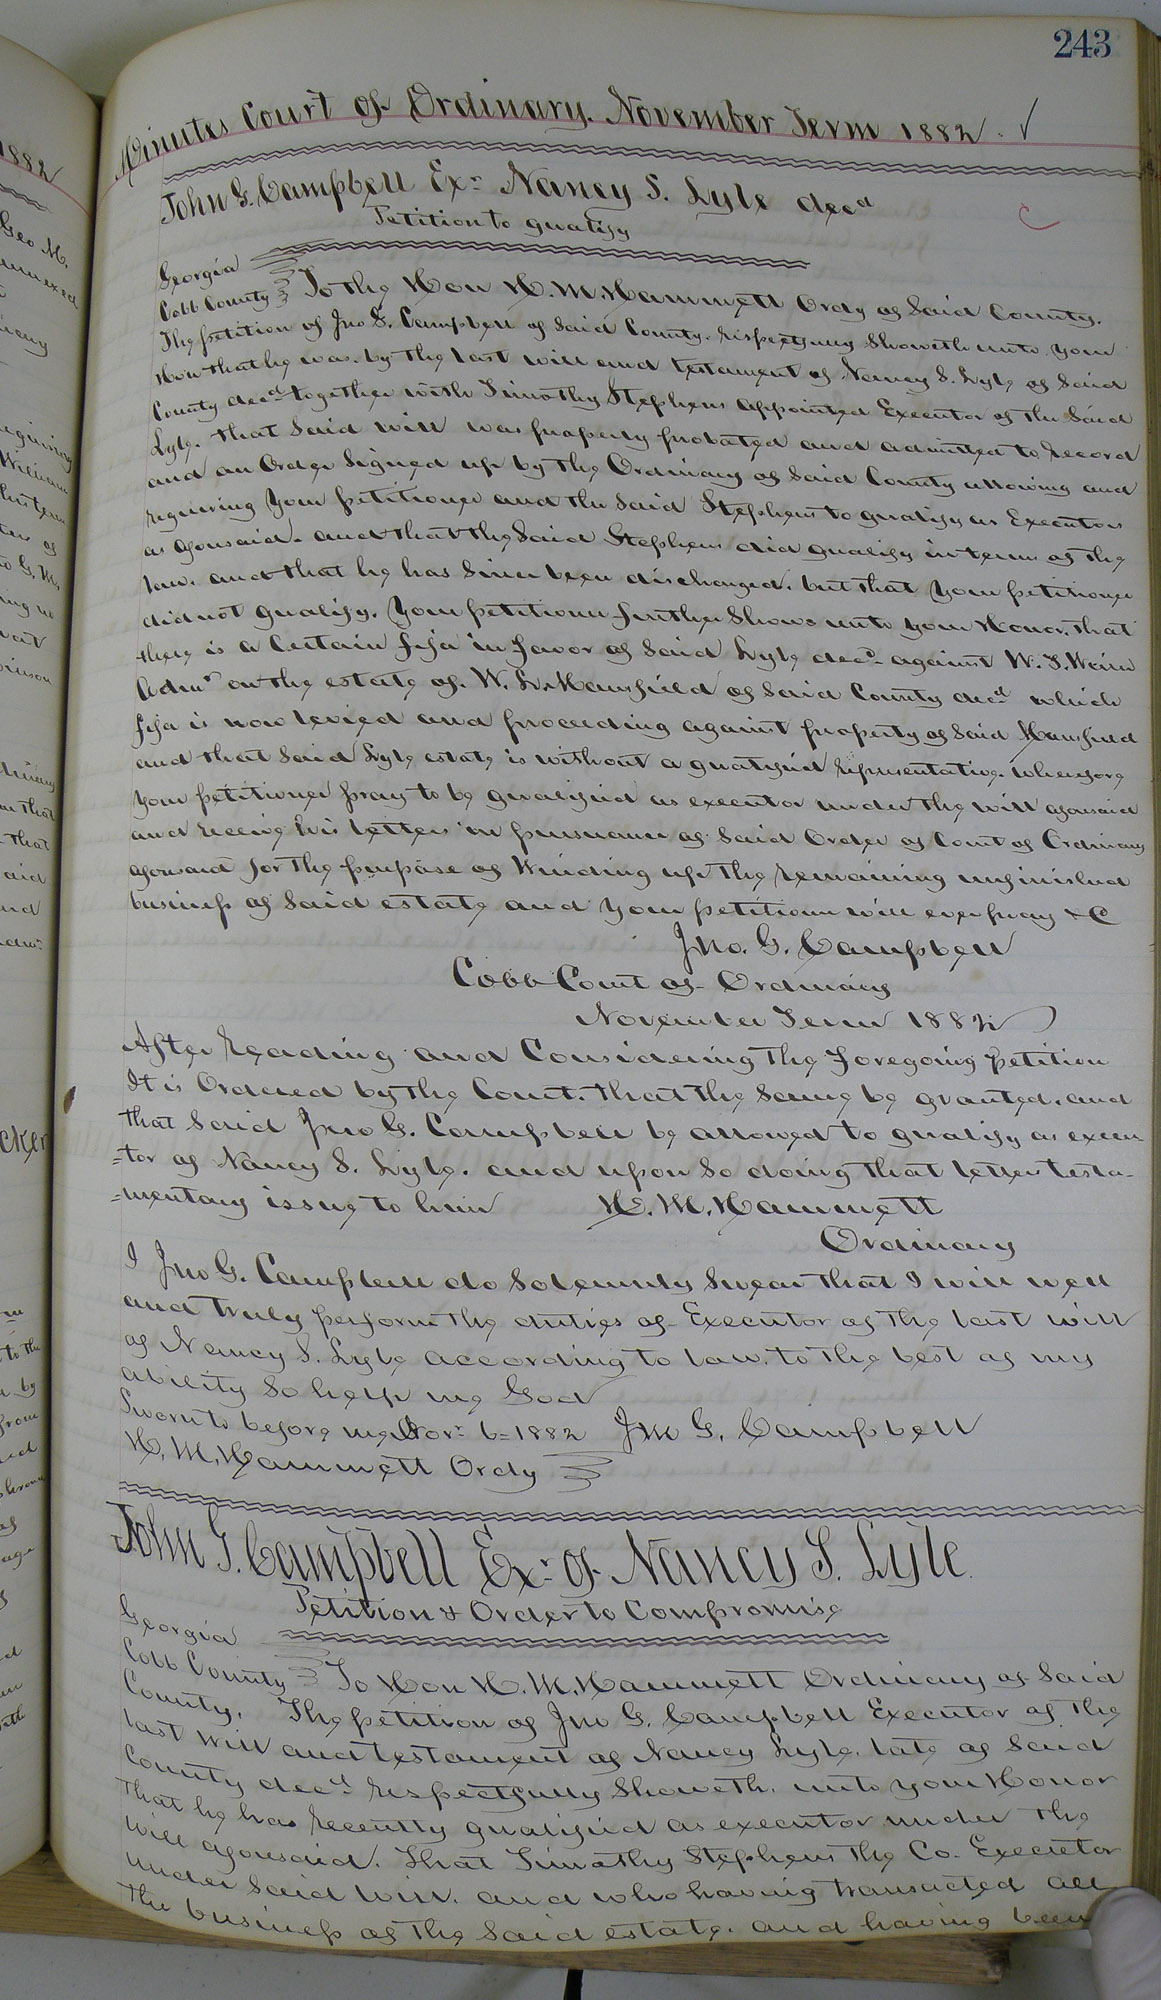 243
Minutes Court of Ordinary. November Term 1882. ✓
John G. Campbell Exr Nancy S. Lyle decd
Petition to qualify
Georgia
Cobb County To the Hon H. M. Hammett Ordy of Said County.
The petition of Jno G. Campbell of Said County. respectfully Showeth unto your
Hon that he was. by the last will and testament of Nancy S. Lyle of Said
County decd together with Timothy Stephens appointed Executor of the Said
Lyle. that Said will was properly probated and admitted to record
and an Order Signed up by the Ordinary of Said County allowing and
requiring Your petitioner and the Said Stephens to qualify as Executors
as aforesaid. and that the Said Stephens did qualify in terms of the
law. and that he has Since been discharged. but that Your petitioner
did not qualify. Your petitioner further Shows unto your Honor. that
there is a Certain fifa in favor of Said Lyle decd against W. J.
Admr on the estate of. W. L. Mansfield of Said County decd which
fifa is now levied and proceeding against property of Said Mansfield
and that Said Lyle estate is without a qualified representative. Wherefore
Your petitioner pray to be qualified as executor under the will aforesaid
and receive his letters in pursuance of Said Order of Court of Ordinary
aforesaid for the purpose of Winding up the remaining unfinished
business of Said estate and Your petitioner will ever pray &C
Jno. G. Campbell
Cobb Court of Ordinary
November Term 1882
After reading and Considering the Foregoing petition
It is Ordered by the Court. that the Same be granted. and
that Said Jno G. Campbell be allowed to qualify as execu
=tor of Nancy S. Lyle. and upon So doing that letters testa-
=mentary issue to him H. M. Hammett
Ordinary
I Jno G. Campbell do Solemnly Swear that I will well
and truly perform the duties of Executor of the last will
of Nancy S. Lyle according to law. to the best of my
ability So help me God
Sworn to before me Novr 6= 1882 Jno G. Campbell
H. M. Hammett Ordy
John G. Campbell Exr of Nancy S. Lyle.
Petition & Order to Compromise
Georgia
Cobb County To Hon H. M. Hammett Ordinary of Said
County. The petition of Jno G. Campbell Executor of the
last Will and testament of Nancy Lyle. late of Said
County decd respectfully Showeth. unto your Honor
that he has recently qualified as executor under the
Will aforesaid. that Timothy Stephens the Co. Executor
under Said Will. and who having transacted all
the business of the Said estate. and having been